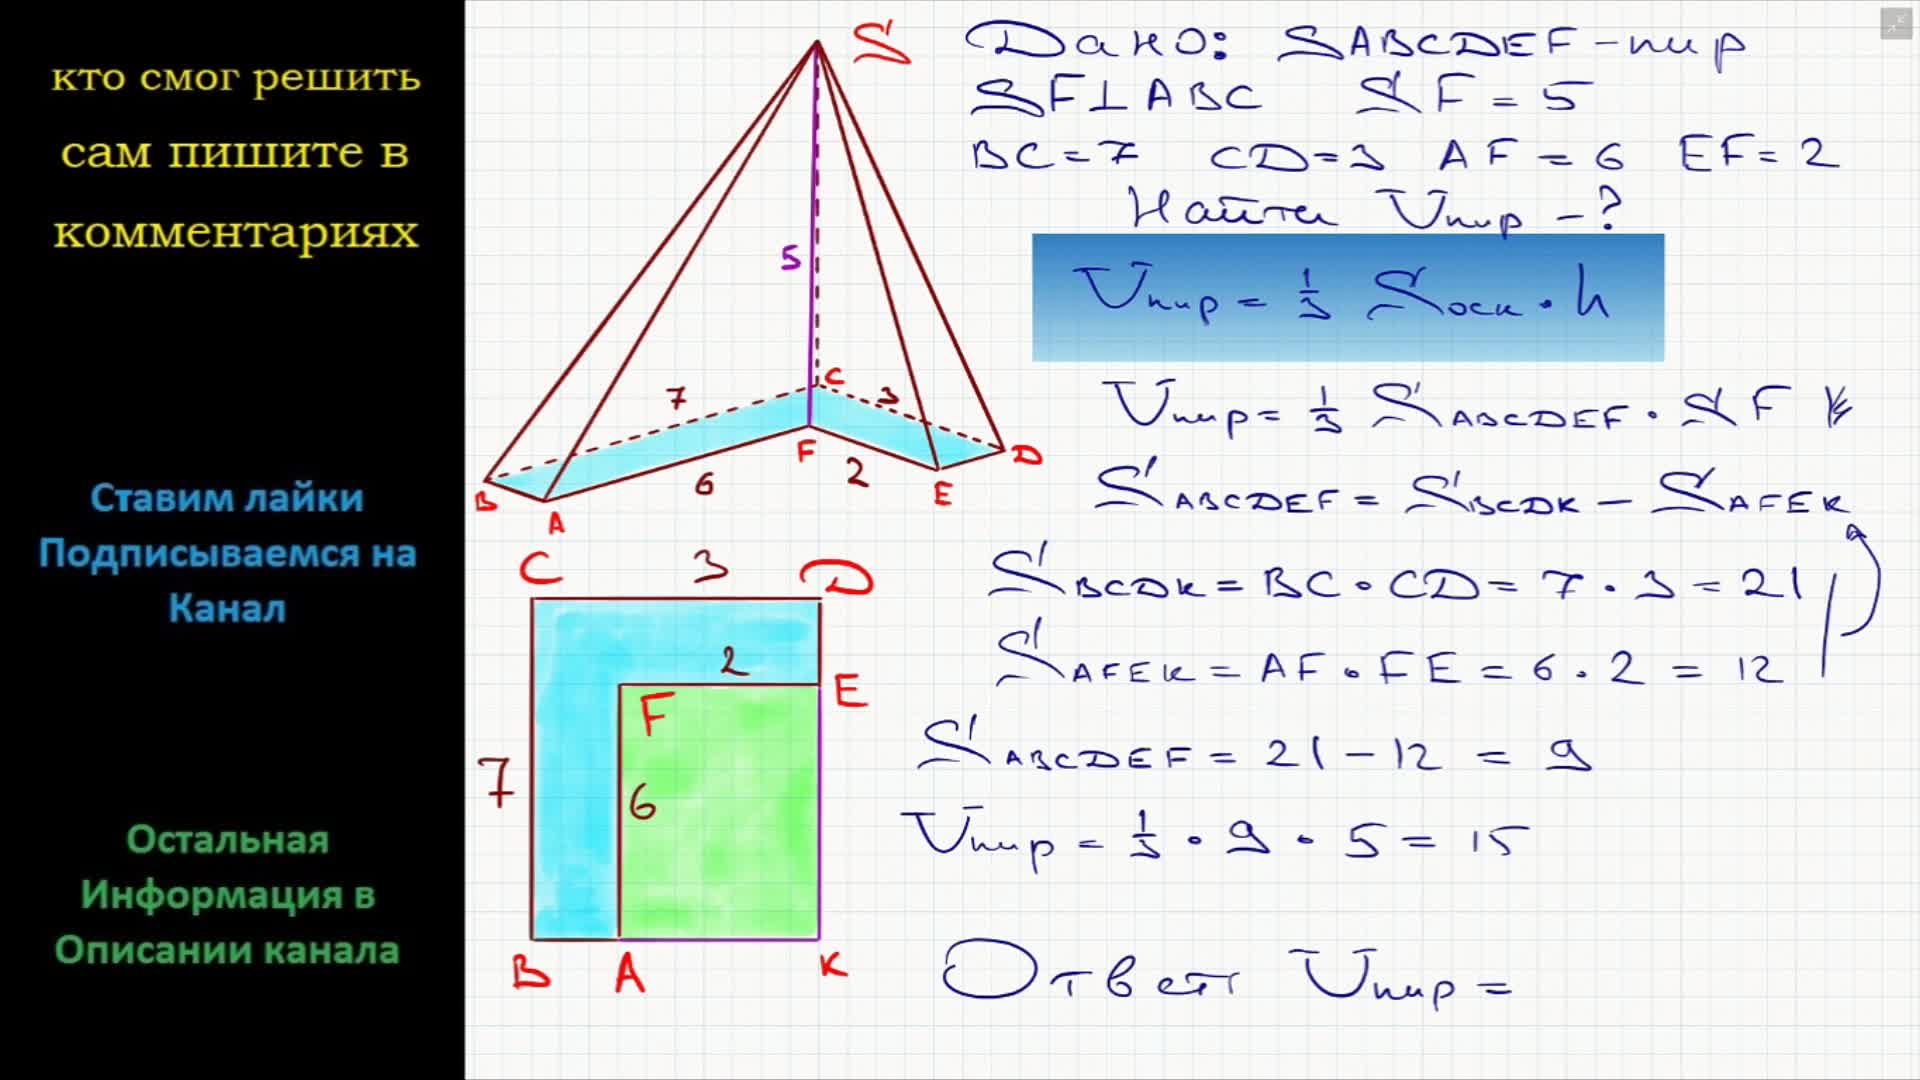 кто смог решить
сам пишите в
комментариях
Ставим лайки
Подписываемся на
Канал
Остальная
Информация в
Описании канала
S
5
7
C
3
F
D
6
2
E
B
A
C
3
D
2
F
E
7
6
B
A
K
Дано: SABCDEF - пир
SF⊥ABC SF = 5
BC = 7 CD = 3 AF = 6 EF = 2
Найти Vпир - ?
Vпир = 1/3 Sосн · h
Vпир = 1/3 SABCDEF · SF
SABCDEF = SBCDK - SAFEK
SBCDK = BC · CD = 7 · 3 = 21
SAFEK = AF · FE = 6 · 2 = 12
SABCDEF = 21 - 12 = 9
Vпир = 1/3 · 9 · 5 = 15
Ответ Vпир =